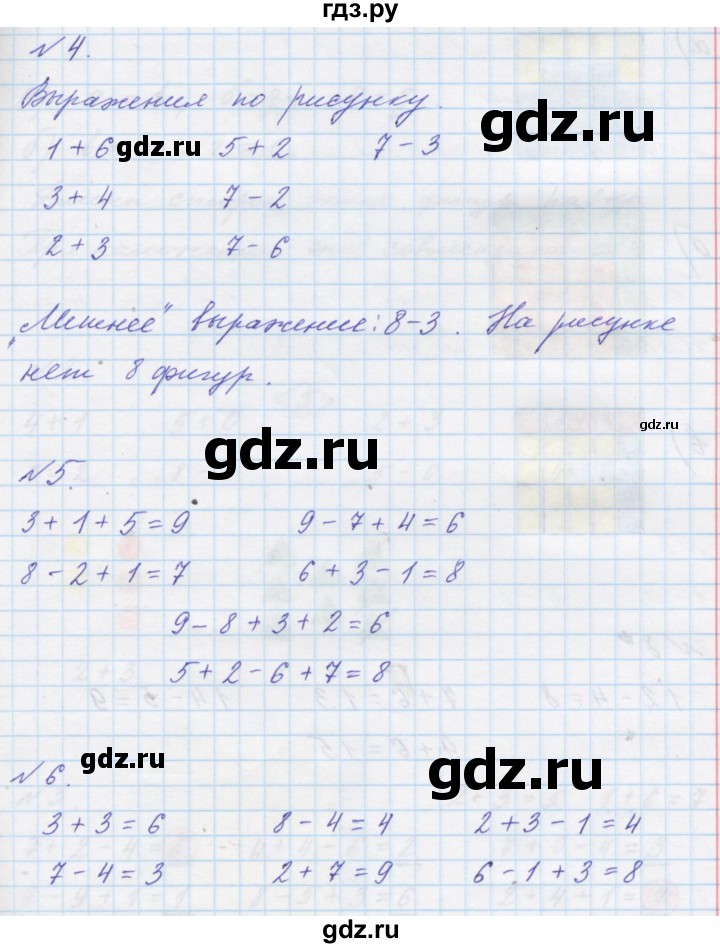 гдз.ру
№4.
Выражения по рисунку.
1 + 6 5 + 2 7 - 3
gdz.ru gdz.ru
3 + 4 7 - 2
2 + 3 7 - 6
„Лишнее" выражение: 8-3. На рисунке
нет 8 фигур.
gdz.ru
gdz.ru
№5.
3 + 1 + 5 = 9 9 - 7 + 4 = 6
8 - 2 + 1 = 7 6 + 3 - 1 = 8
9 - 8 + 3 + 2 = 6
5 + 2 - 6 + 7 = 8
gdz.ru gdz.ru
№6.
3 + 3 = 6 8 - 4 = 4 2 + 3 - 1 = 4
7 - 4 = 3 2 + 7 = 9 6 - 1 + 3 = 8
gdz.ru